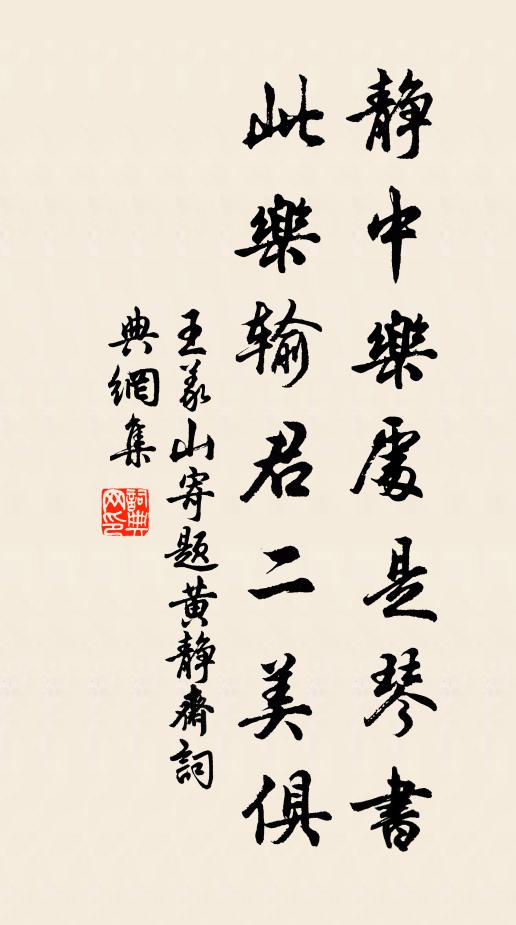 静中樂處是琴書
此樂输君二美俱
王義山寄題黄静齋詞
典網集
詞典網印